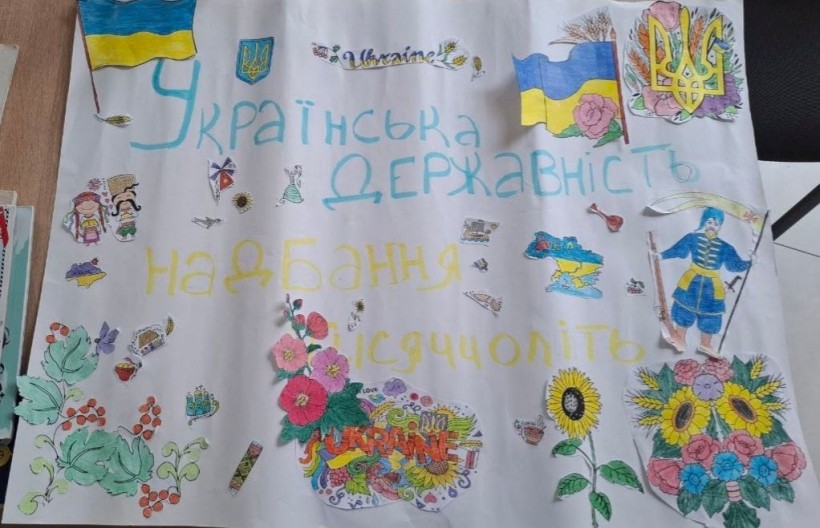 Ukraine!
Українська
Державність
надбання
тисяччоліть
LOVE
UKRAINE